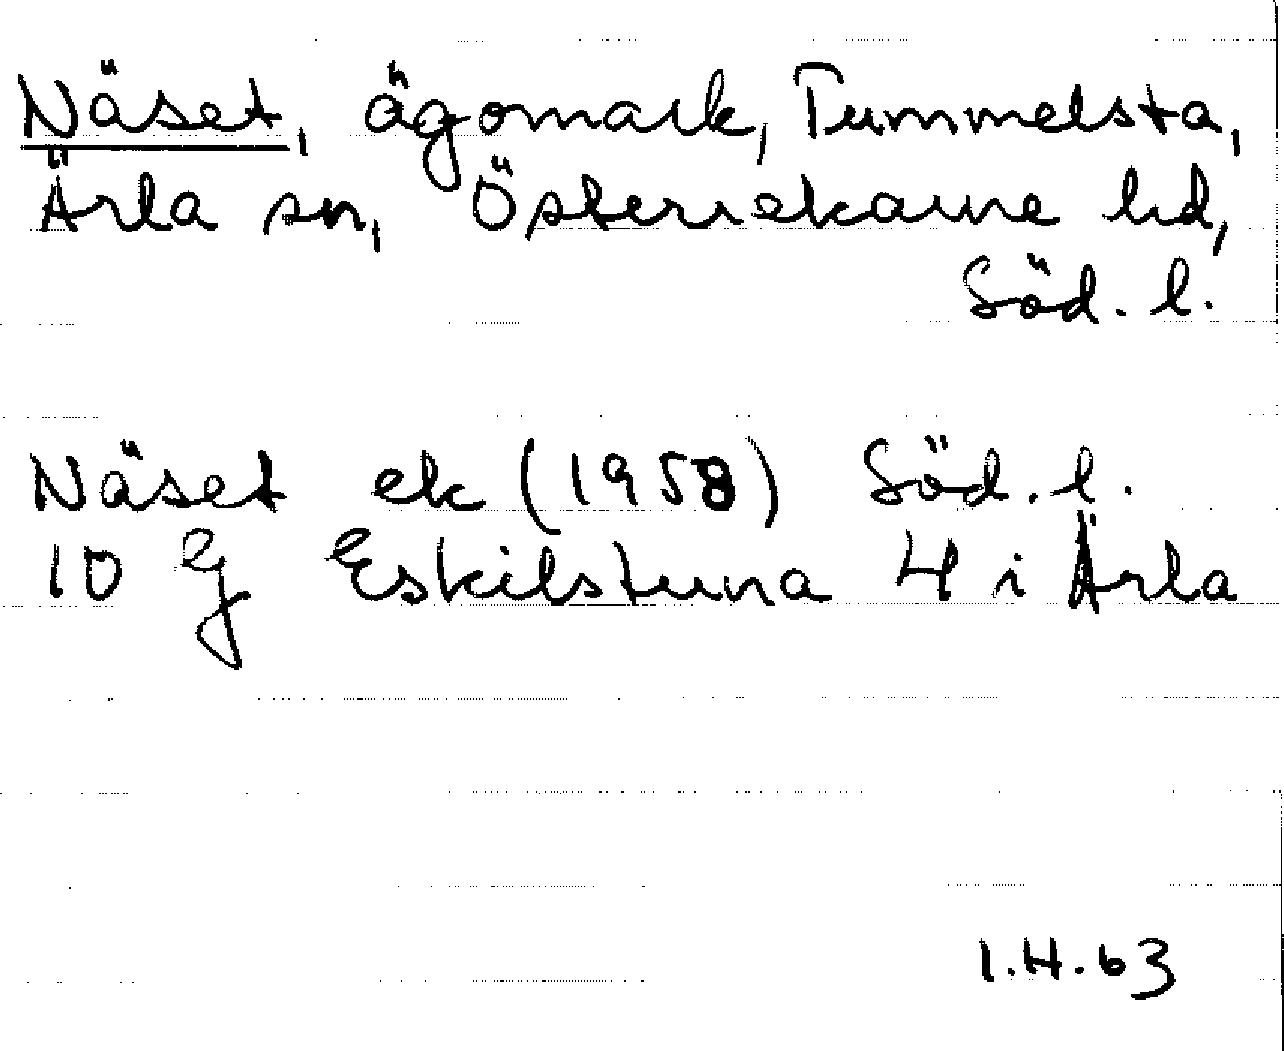 Näset, ägomark, Tummelsta,
Ärla sn, Österrekarne hd,
Söd. l.
Näset ek (1958) Söd. l.
10 G Eskilstuna 4 i Ärla
I.H.63